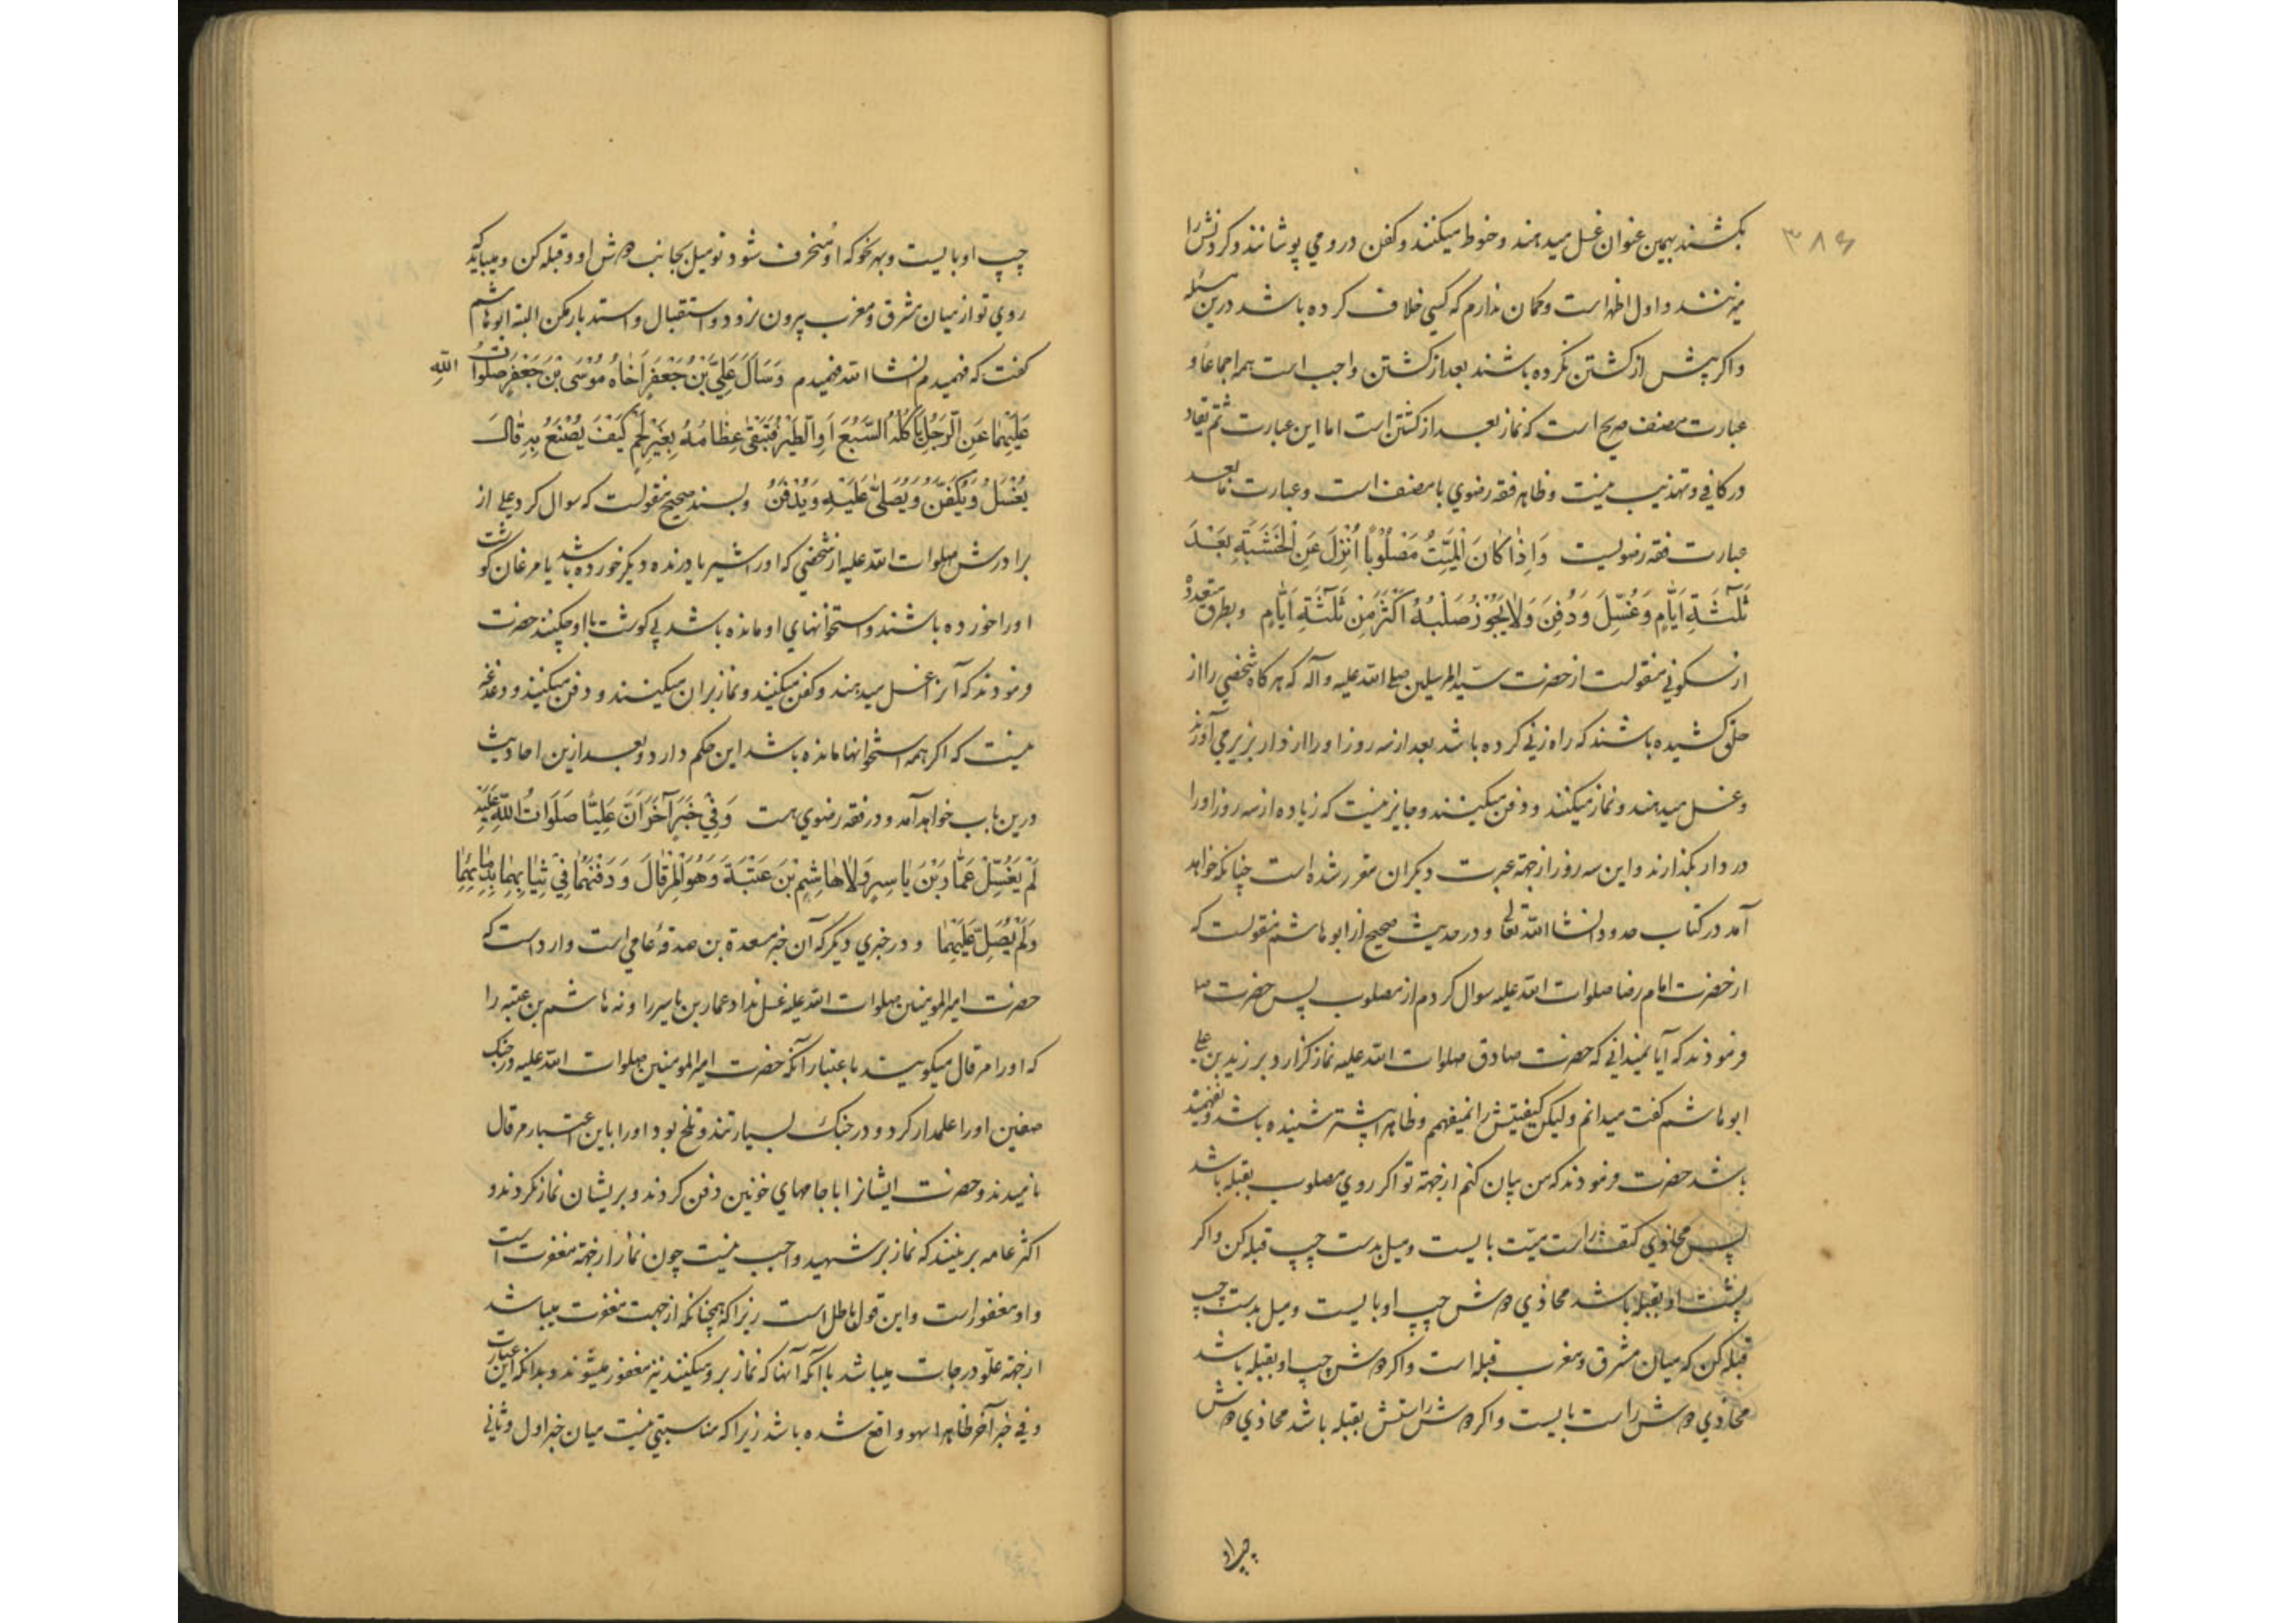 ۳۸۶
بکشند بهمین عنوان غسل میدهند و حنوط میکنند و کفن درو می پوشانند و گردنش را
میزنند و اول اظهر است و گمان ندارم که کسی خلاف کرده باشد درین مسئله
و اکر پیش از کشتن نکرده باشند بعد از کشتن واجب است همه اجماعا و
عبارت مصنف صریح است که نماز بعد از کشتن است اما این عبارت ثم یقاد
در کافی و تهذیب نیست و ظاهر فقه رضوی با مصنف است و عبارت ما بعد
عبارت فقه رضویست وَاِذٰا کٰانَ الْمَیِّتُ مَصْلُوْبًا اُنْزِلَ عَنِ الْخَشَبَةِ بَعْدَ
ثَلٰثَةِ اَیّٰامٍ وَ غُسِّلَ وَ دُفِنَ وَلٰا یَجُوْزُ صَلْبُهُ اَکْثَرَ مِنْ ثَلٰثَةِ اَیّٰامٍ و بطرق متعدده
از سکونی منقولست از حضرت سید المرسلین صلی الله علیه و آله که هر کاه شخصی را از
حلق کشیده باشند که راه زنی کرده باشد بعد از سه روز او را از دار بزیر می آورند
و غسل میدهند و نماز میکنند و دفن میکنند و جایز نیست که زیاده از سه روز او را
در دار بگذارند و این سه روز از جهة عبرت دیکران مقرر شده است چنانکه خواهد
آمد در کتاب حدود انشا الله تعالی و در حدیث صحیح از ابو هاشم منقولست که
از حضرت امام رضا صلوات الله علیه سوال کردم از مصلوب پس حضرت
فرمودند که آیا نمیدانی که حضرت صادق صلوات الله علیه نماز کزارد بر زید بن علی
ابو هاشم کفت میدانم ولیکن کیفیتش را نمیفهمم و ظاهرا پیشتر شنیده باشد و نفهمیده
باشد حضرت فرمودند که من بیان کنم از جهة تو اکر روی مصلوب بقبله باشد
پس محاذی کتف راست میت بایست و میل بدست چپ قبله کن و اکر
پشت او بقبله باشد محاذی دوش چپ او بایست و میل بدست چپ
قبله کن که میان مشرق و مغرب قبله است و اکر دوش چپ او بقبله باشد
محاذی دوش راست بایست و اکر دوش راستش بقبله باشد محاذی دوش
چپ او
چپ او بایست و بهر نحو که او منحرف شود تو میل بجانب دوش او و قبله کن و میباید که
روی تو از میان مشرق و مغرب بیرون نرود و استقبال و استدبار مکن البته ابو هاشم
کفت که فهمیدم انشا الله فهمیدم وَسَاَلَ عَلِیُّ بْنُ جَعْفَرٍ اَخٰاهُ مُوْسَی بْنَ جَعْفَرٍ صَلَوٰاتُ اللّٰهِ
عَلَیْهِمٰا عَنِ الرَّجُلِ یَاْکُلُهُ السَّبُعُ اَوِ الطَّیْرُ فَتَبْقٰی عِظٰامُهُ بِغَیْرِ لَحْمٍ کَیْفَ یُصْنَعُ بِهِ قٰالَ
یُغْسَلُ وَ یُکَفَّنُ وَ یُصَلّٰی عَلَیْهِ وَ یُدْفَنُ و بسند صحیح منقولست که سوال کرد علی از
برادرش صلوات الله علیه از شخصی که او را شیر یا درنده دیکر خورده باشد یا مرغان کوشت
او را خورده باشند و استخوانهای او مانده باشد بی کوشت با او چکنند حضرت
فرمودند که آنرا غسل میدهند و کفن میکنند و نماز بران میکنند و دفن میکنند و دغدغه
نیست که اکر همه استخوانها مانده باشد این حکم دارد و بعد ازین احادیث
درین باب خواهد آمد و در فقه رضوی هست وَفِیْ خَبَرٍ آخَرَ اَنَّ عَلِیًّا صَلَوَاتُ اللّٰهِ عَلَیْهِ
لَمْ یُغَسِّلْ عَمَّارَ بْنَ یٰاسِرٍ وَلٰا هٰاشِمَ بْنَ عُتْبَةَ وَهُوَ الْمِرْقٰالُ وَ دَفَنَهُمٰا فِیْ ثِیٰابِهِمٰا بِدِمٰائِهِمٰا
وَلَمْ یُصَلِّ عَلَیْهِمٰا و در خبری دیکر که آن خبر مسعدة بن صدقۀ عامی است وارد است که
حضرت امیر المومنین صلوات الله علیه غسل نداد عمار بن یاسر را و نه هاشم بن عتبه را
که او را مرقال میکویند باعتبار آنکه حضرت امیر المومنین صلوات الله علیه در جنک
صفین او را علمدار کرد و در جنک بسیار تند و تلخ بود او را باین اعتبار مرقال
نامیدند و حضرت ایشانرا با جامهای خونین دفن کردند و بریشان نماز نکردند و
اکثر عامه برینند که نماز بر شهید واجب نیست چون نماز از جهة مغفرت است
و او مغفور است و این قول باطل است زیرا که همچنانکه از جهت مغفرت میباشد
از جهة علو درجات میباشد با آنکه آنها که نماز برو میکنند نیز مغفور میشوند و بدانکه این عبارت
و فی خبر آخر ظاهرا سهو واقع شده باشد زیرا که مناسبتی نیست میان خبر اول و ثانی